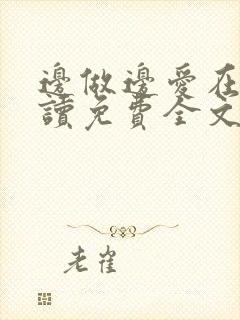 邊做邊愛在
讀免費全文
老崔